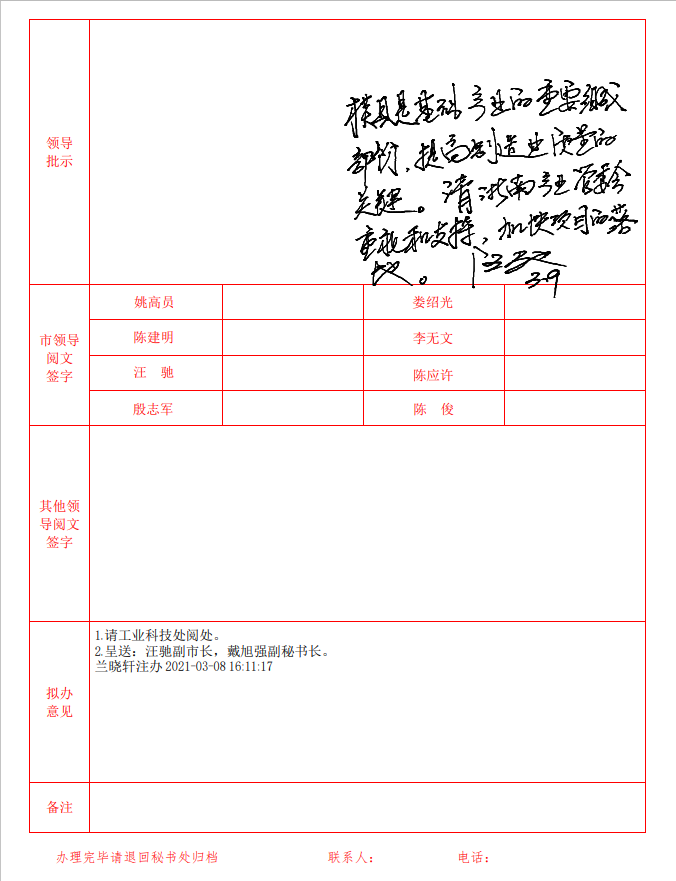 领导
批示
模具是基础产业的重要组成
部分，提高制造业质量的
关键。请浙南产业管委会
重视和支持，加快项目的落
地。 汪驰
3.9
姚高员
娄绍光
市领导
阅文
签字
陈建明
李无文
汪 驰
陈应许
殷志军
陈 俊
其他领
导阅文
签字
1.请工业科技处阅处。
2.呈送：汪驰副市长，戴旭强副秘书长。
兰晓轩注办 2021-03-08 16:11:17
拟办
意见
备注
办理完毕请退回秘书处归档 联系人： 电话：